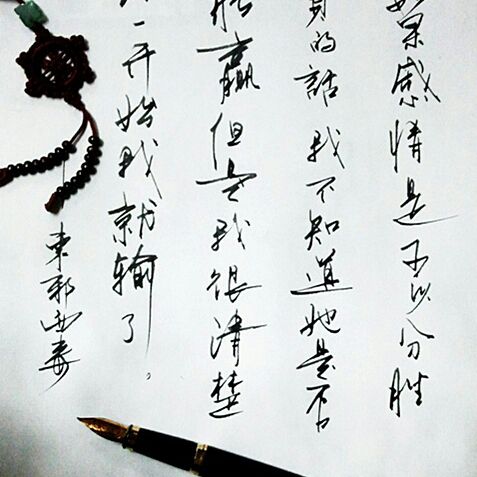 如果感情是可以分胜
负的話 我不知道她是否
能赢 但是我很清楚
一开始我就输了。
東邪西毒